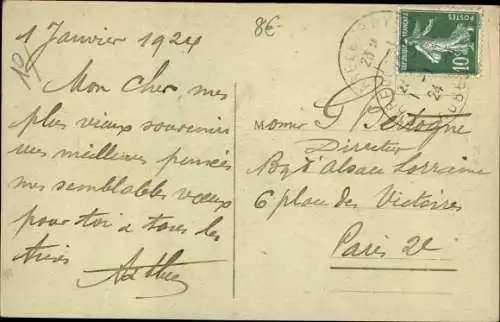 1 Janvier 1924
8€
10
Mon cher, mes
plus vieux souvenirs
mes meilleures pensées
mes semblables vœux
pour toi a tous les
Monsier G
Directeur
Bque d'Alsace Lorraine
6 place des Victoires
Paris 2e
POSTES
REPUBLIQUE FRANÇAISE
10c
24